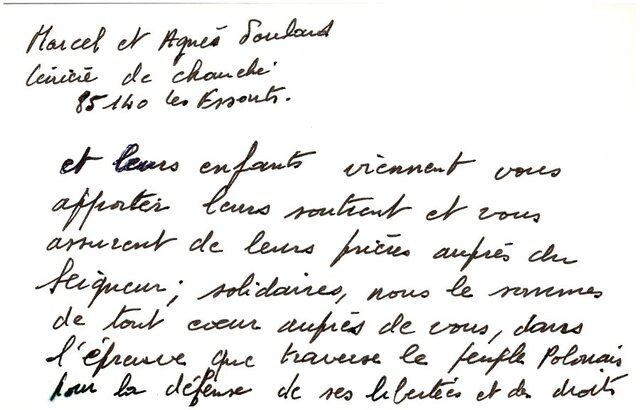 Marcel et Agnès Soulard
de chauché
85140 les Essarts.
et leurs enfants viennent vous
apporter leurs soutient et vous
assurent de leurs prières auprès du
Seigneur; solidaires, nous le sommes
de tout cœur auprès de vous, dans
l'épreuve que traverse le peuple Polonais
pour la défense de ses libertées et des droits